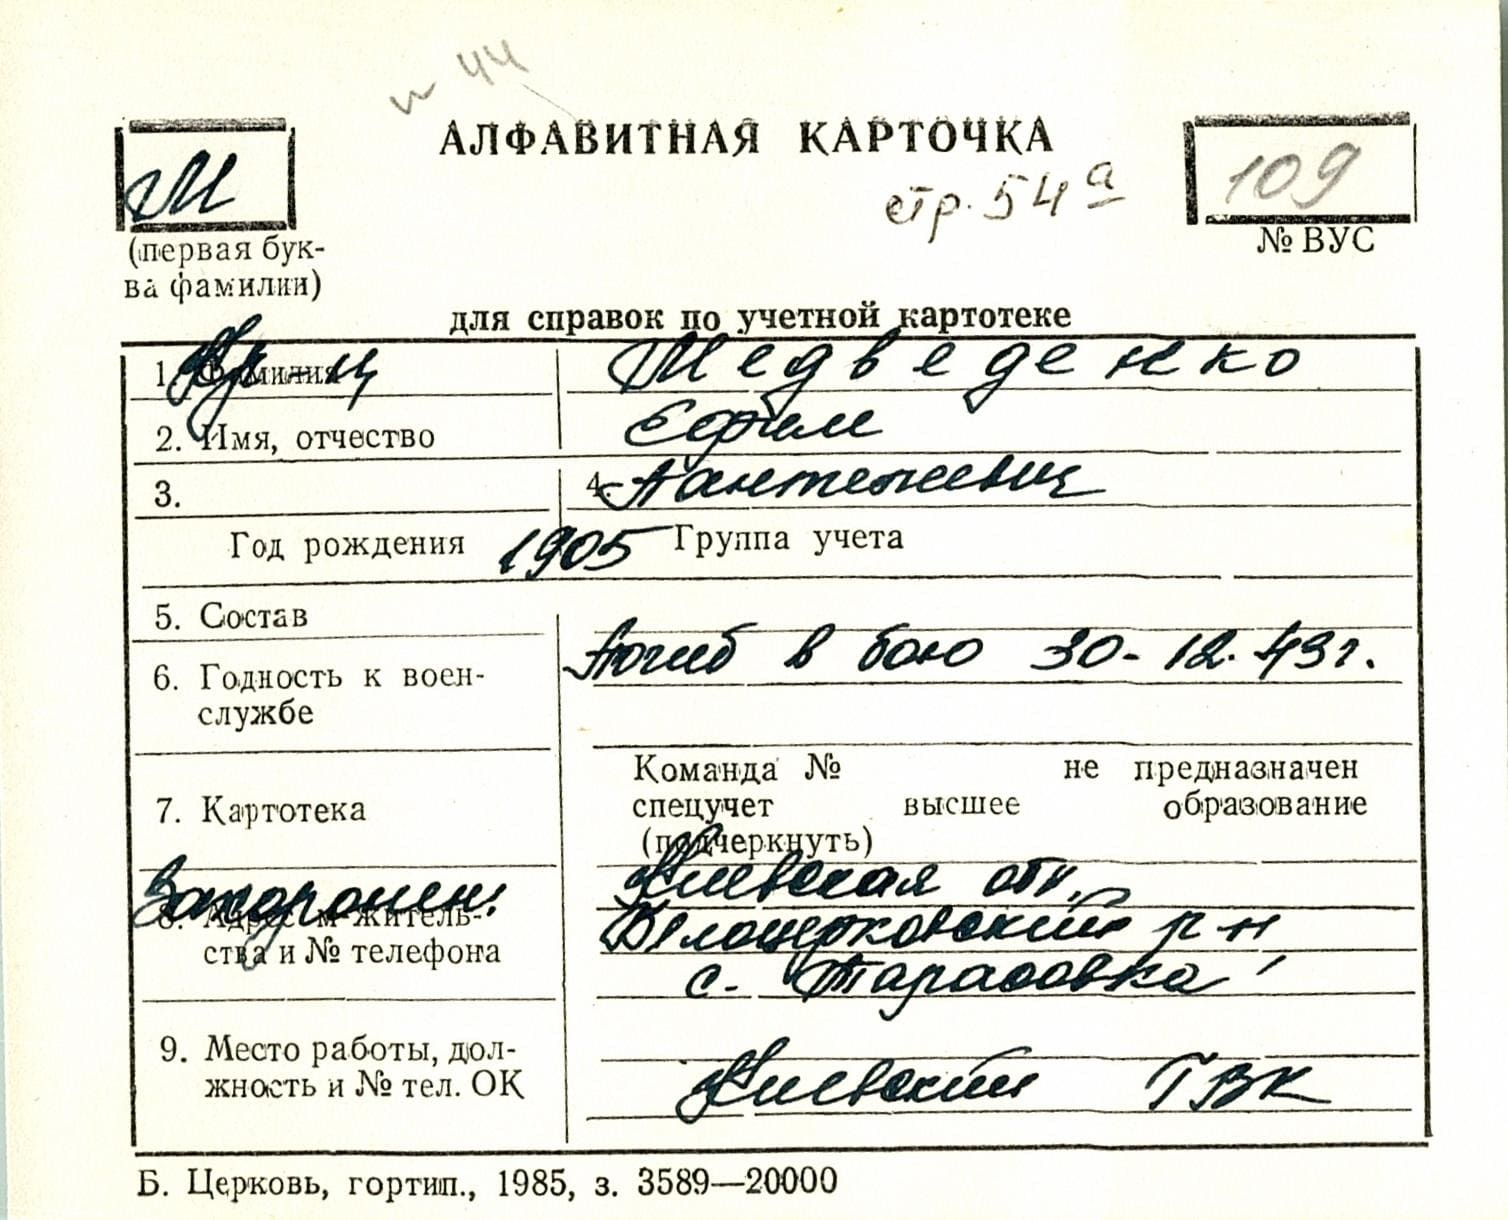 н 44
АЛФАВИТНАЯ КАРТОЧКА
М
стр. 54 а
109
(первая бук-
ва фамилии)
№ ВУС
для справок по учетной картотеке
1. Фамилия Медведенко
2. Имя, отчество Ефим
3. 4. Пантелеевич
Год рождения 1905 Группа учета
5. Состав
Погиб в бою 30-12.43г.
6. Годность к воен-
службе
Команда № не предназначен
7. Картотека спецучет высшее образование
(подчеркнуть)
Захоронен: Киевская обл.
8. Адрес м-житель- Белоцерковский р-н
ства и № телефона
с. Тарасовка
9. Место работы, дол-
жность и № тел. ОК Киевский ГВК
Б. Церковь, гортип., 1985, з. 3589—20000